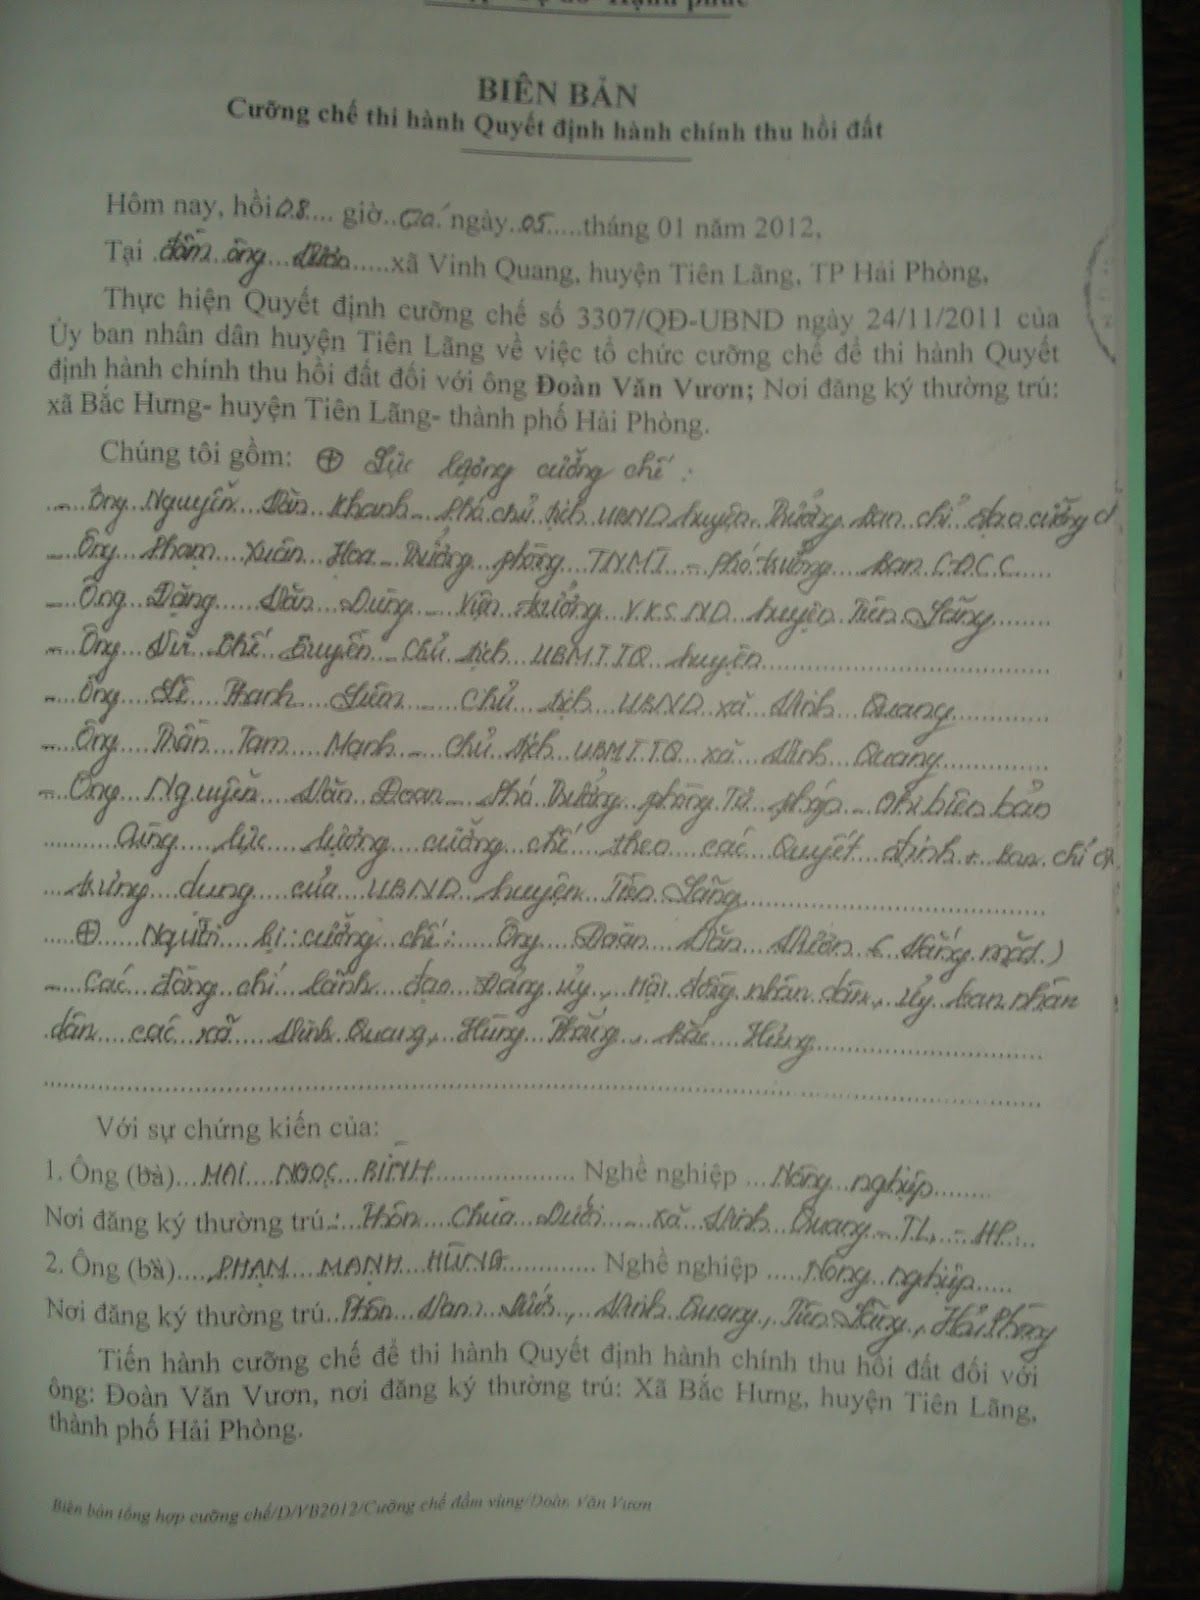 Tự do Hạnh phúc
BIÊN BẢN
Cưỡng chế thi hành Quyết định hành chính thu hồi đất
Hôm nay, hồi 08.... giờ.. ngày..05.....tháng 01 năm 2012,
Tại .đầm..ông...Vươn.....xã Vinh Quang, huyện Tiên Lãng, TP Hải Phòng,
Thực hiện Quyết định cưỡng chế số 3307/QĐ-UBND ngày 24/11/2011 của
Ủy ban nhân dân huyện Tiên Lãng về việc tổ chức cưỡng chế để thi hành Quyết
định hành chính thu hồi đất đối với ông Đoàn Văn Vươn; Nơi đăng ký thường trú:
xã Bắc Hưng- huyện Tiên Lãng- thành phố Hải Phòng.
Chúng tôi gồm: ⊕ Lực lượng cưỡng chế :
- Ông Nguyễn Văn Khanh - Phó chủ tịch UBND huyện, Trưởng ban chỉ đạo cưỡng c
- Ông Phạm Xuân Hoa - Trưởng phòng TNMT - phó trưởng Ban CĐCC
- Ông Đặng Văn Dũng - Viện trưởng VKSND huyện Tiên Lãng
- Ông Vũ Thế Quyến - Chủ tịch UBMTTQ huyện
- Ông Lê Thanh Liêm - Chủ tịch UBND xã Vinh Quang
- Ông Trần Tam Mạnh - Chủ tịch UBMTTQ xã Vinh Quang
- Ông Nguyễn Văn Đoan - Phó Trưởng phòng Tư pháp - Ghi biên bản
Cùng lực lượng cưỡng chế theo các Quyết định + Ban chỉ đ
trưng dụng của UBND huyện Tiên Lãng
⊕ Người bị cưỡng chế: Ông Đoàn Văn Vươn (Vắng mặt)
- Các đồng chí lãnh đạo Đảng ủy, Hội đồng nhân dân, Ủy ban nhân
dân các xã Vinh Quang, Hùng Thắng, Bắc Hưng
Với sự chứng kiến của:
1. Ông (bà)... MAI NGỌC BÌNH ... Nghề nghiệp ... Nông nghiệp
Nơi đăng ký thường trú : Thôn Chùa Dưới - xã Vinh Quang - TL - HP
2. Ông (bà)..... PHẠM MẠNH HÙNG ... Nghề nghiệp ..... Nông nghiệp
Nơi đăng ký thường trú.. Thôn, Vinh Quang, Tiên Lãng, Hải Phòng
Tiến hành cưỡng chế để thi hành Quyết định hành chính thu hồi đất đối với
ông: Đoàn Văn Vươn, nơi đăng ký thường trú: Xã Bắc Hưng, huyện Tiên Lãng,
thành phố Hải Phòng.
Biên bản tổng hợp cưỡng chế/D/VB2012/Cưỡng chế đầm vùng/Đoàn Văn Vươn